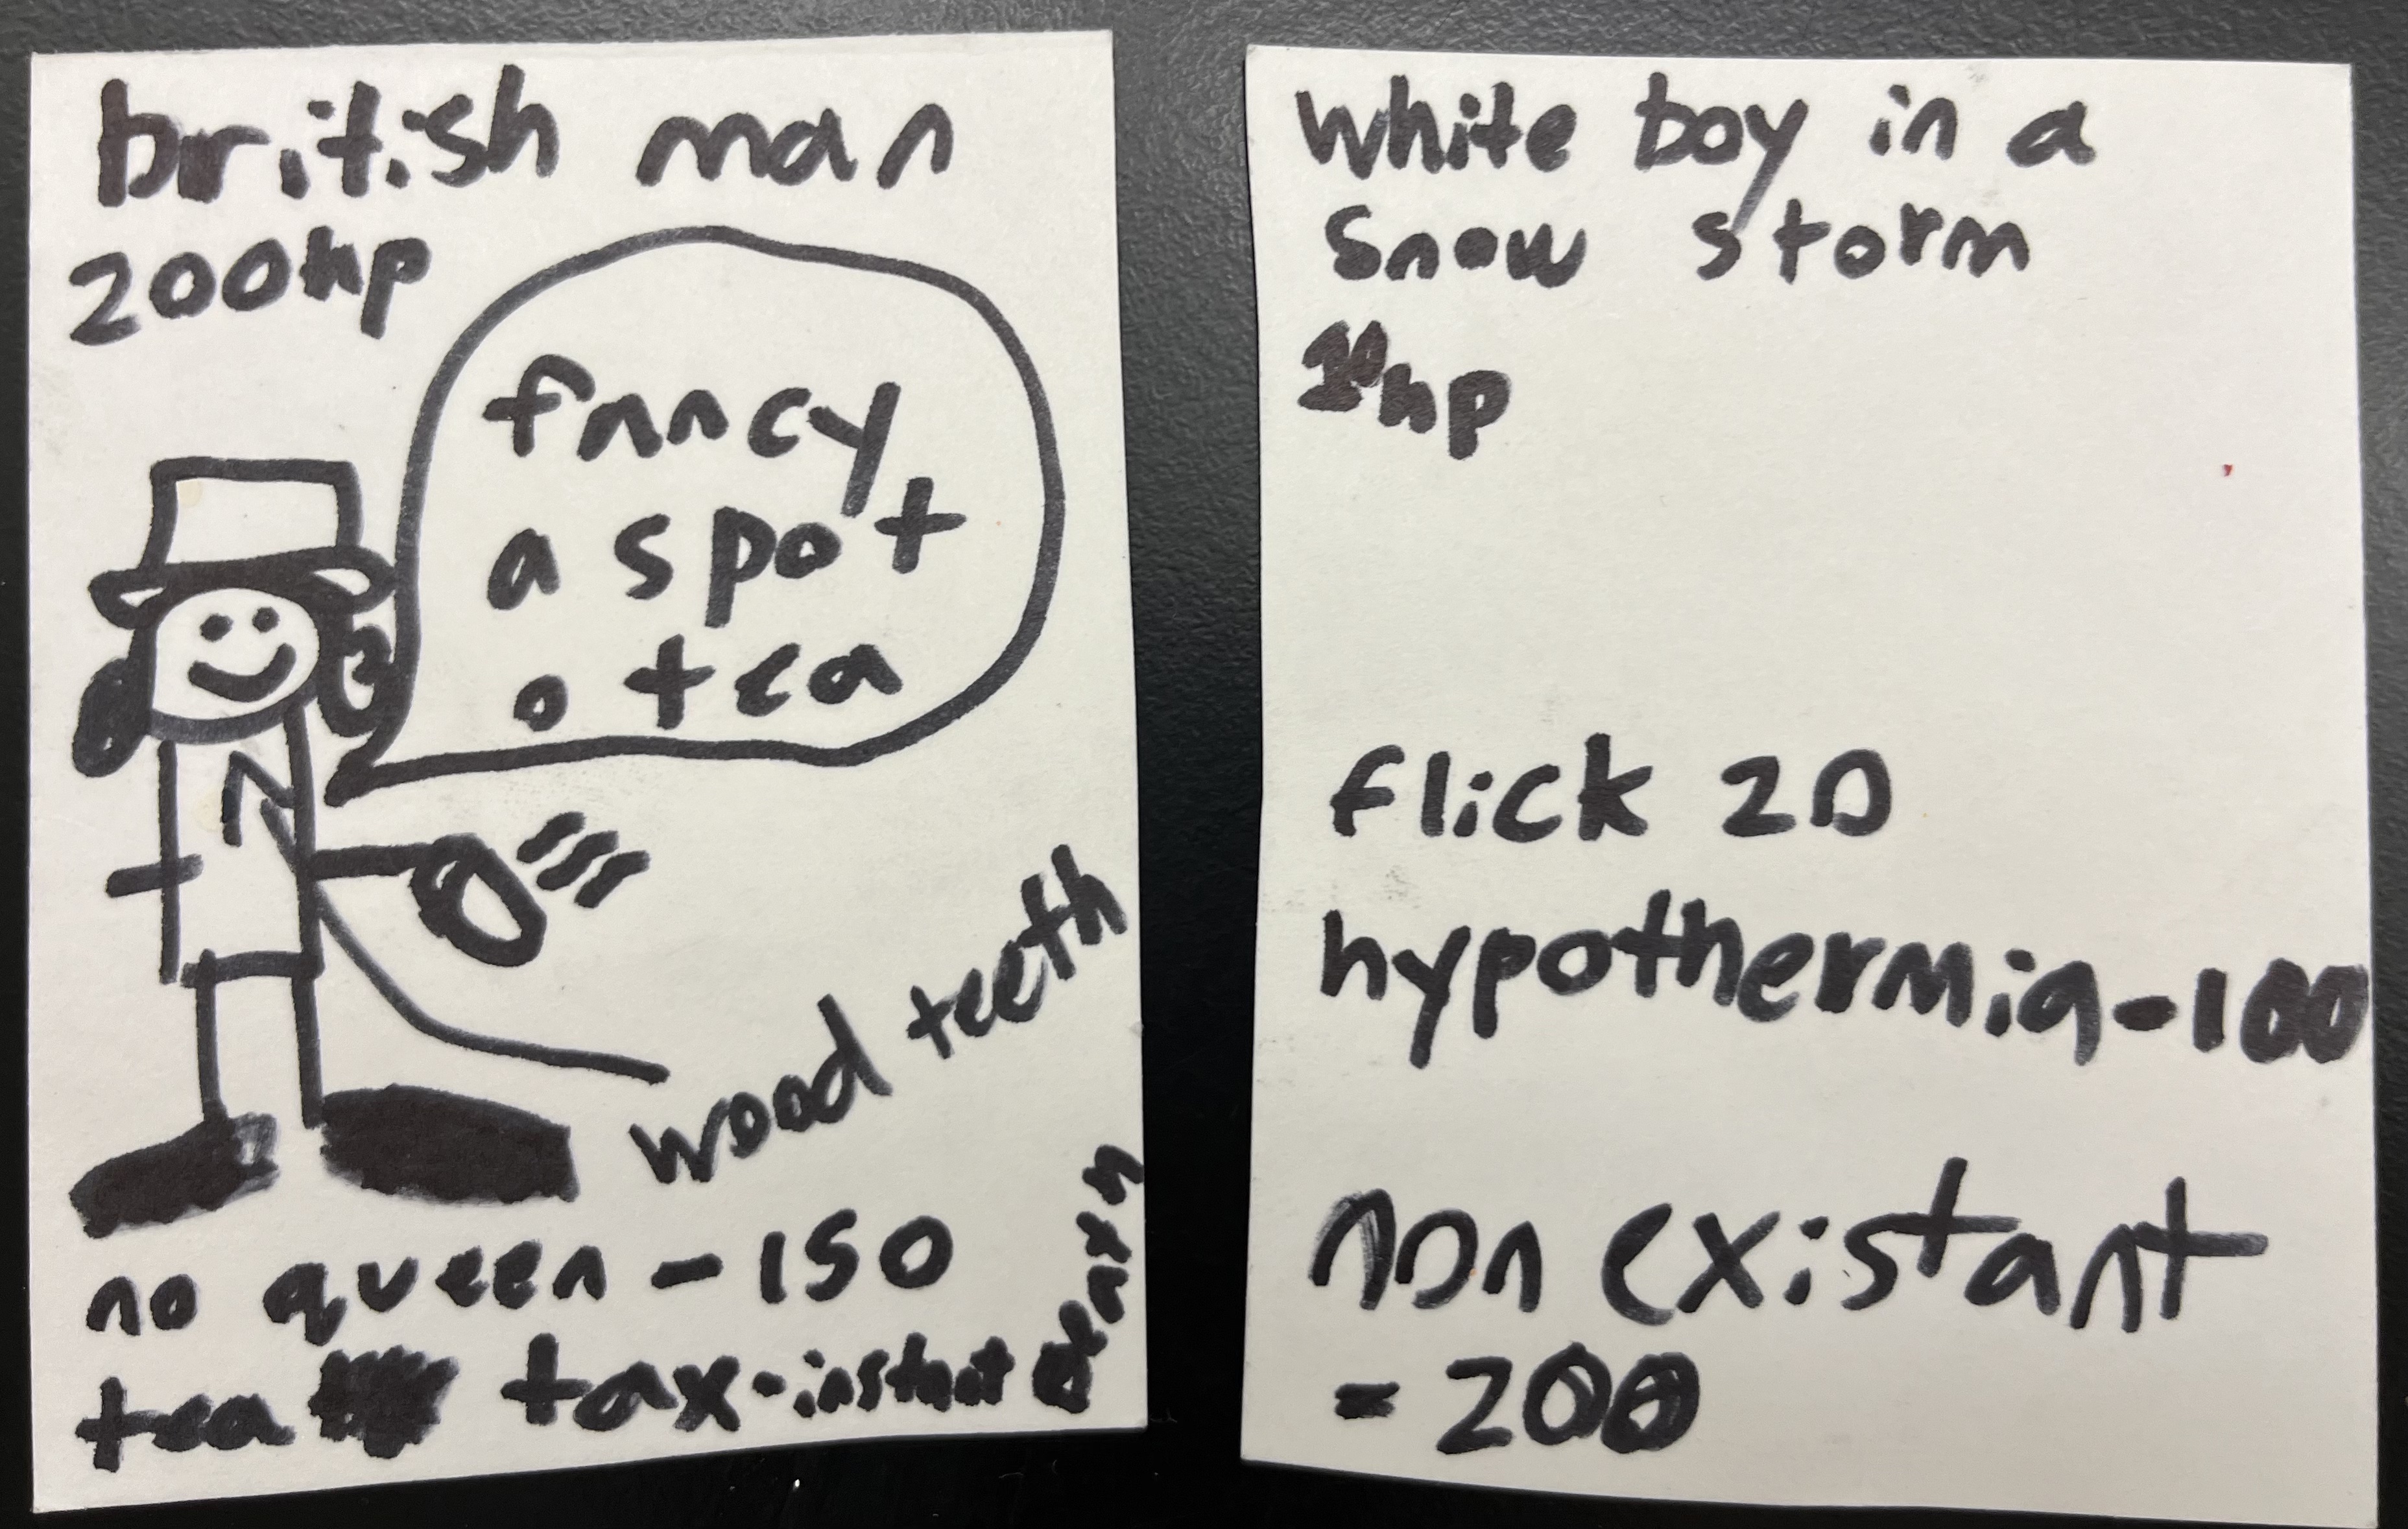 british man
200hp
fancy
a spot
o tea
wood teeth
no queen - 150
tea tax - instant death
white boy in a
snow storm
hp
flick 20
hypothermia - 100
non existant
= 200